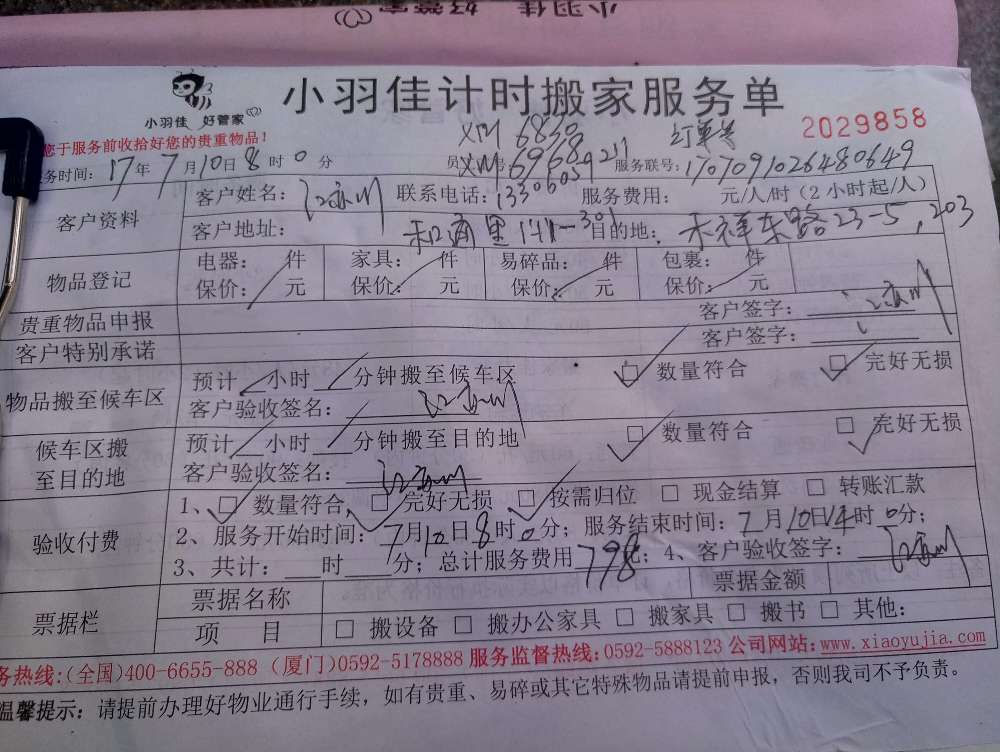 小羽佳 好管家
小羽佳 好管家
小羽佳计时搬家服务单
2029858
您于服务前收拾好您的贵重物品!
XM 6830 订单号
务时间: 17年7月10日8时0分 员 XM 6968 号 服务联号: 1707091026480649
客户资料 客户姓名: 联系电话: 服务费用: 元/人/时 (2小时起/人)
客户地址: 和通里141-301 目的地: 禾祥东路23-5,203
物品登记 电器: 件 家具: 件 易碎品: 件 包裹: 件
保价: 元 保价: 元 保价: 元 保价: 元
贵重物品申报 客户签字:
客户特别承诺 客户签字:
物品搬至候车区 预计 小时 分钟搬至候车区 数量符合 完好无损
客户验收签名:
候车区搬至目的地 预计 小时 分钟搬至目的地 数量符合 完好无损
客户验收签名:
验收付费 1、 数量符合, 完好无损 按需归位 现金结算 转账汇款
2、服务开始时间: 7月10日8时0分; 服务结束时间: 7月10日14时0分;
3、共计: 时 分; 总计服务费用 798 元; 4、客户验收签字:
票据栏 票据名称 票据金额
项 目 搬设备 搬办公家具 搬家具 搬书 其他:
务热线:(全国)400-6655-888 (厦门)0592-5178888 服务监督热线:0592-5888123 公司网站: www.xiaoyujia.com
温馨提示: 请提前办理好物业通行手续, 如有贵重、易碎或其它特殊物品请提前申报, 否则我司不予负责。